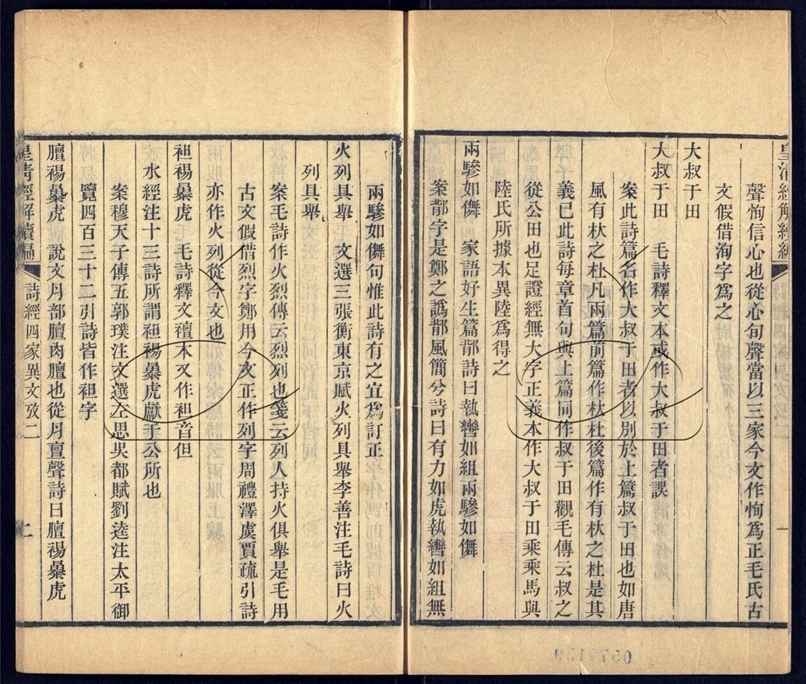 聲恂信心也從心旬聲當以三家今文作恂爲正毛氏古
文假借洵字爲之
大叔于田
大叔于田 毛詩釋文本或作大叔于田者誤
案此詩篇名作大叔于田者以別於上篇叔于田也如唐
風有杕之杜凡兩篇前篇作杕杜後篇作有杕之杜是其
義已此詩每章首句與上篇同作叔于田觀毛傳云叔之
從公田也足證經無大字正義本作大叔于田乘乘馬與
陸氏所據本異陸爲得之
兩驂如儛 家語好生篇鄁詩曰執轡如組兩驂如儛
案鄁字是鄭之譌鄁風簡兮詩曰有力如虎執轡如組無
兩驂如儛句惟此詩有之宜爲訂正
火列具舉 文選三張衡東京賦火列具舉李善注毛詩曰火
列具舉
案毛詩作火烈傳云烈列也箋云列人持火俱舉是毛用
古文假借烈字鄭用今文正作列字周禮澤虞賈疏引詩
亦作火列從今文也
袒裼暴虎 毛詩釋文襢本又作袒音但
水經注十三詩所謂袒裼暴虎獻于公所也
案穆天子傳五郭璞注文選左思吳都賦劉逵注太平御
覽四百三十二引詩皆作袒字
膻裼暴虎 說文丹部膻肉膻也從丹亶聲詩曰膻裼暴虎
皇清經解續編 詩經四家異文攷二 二